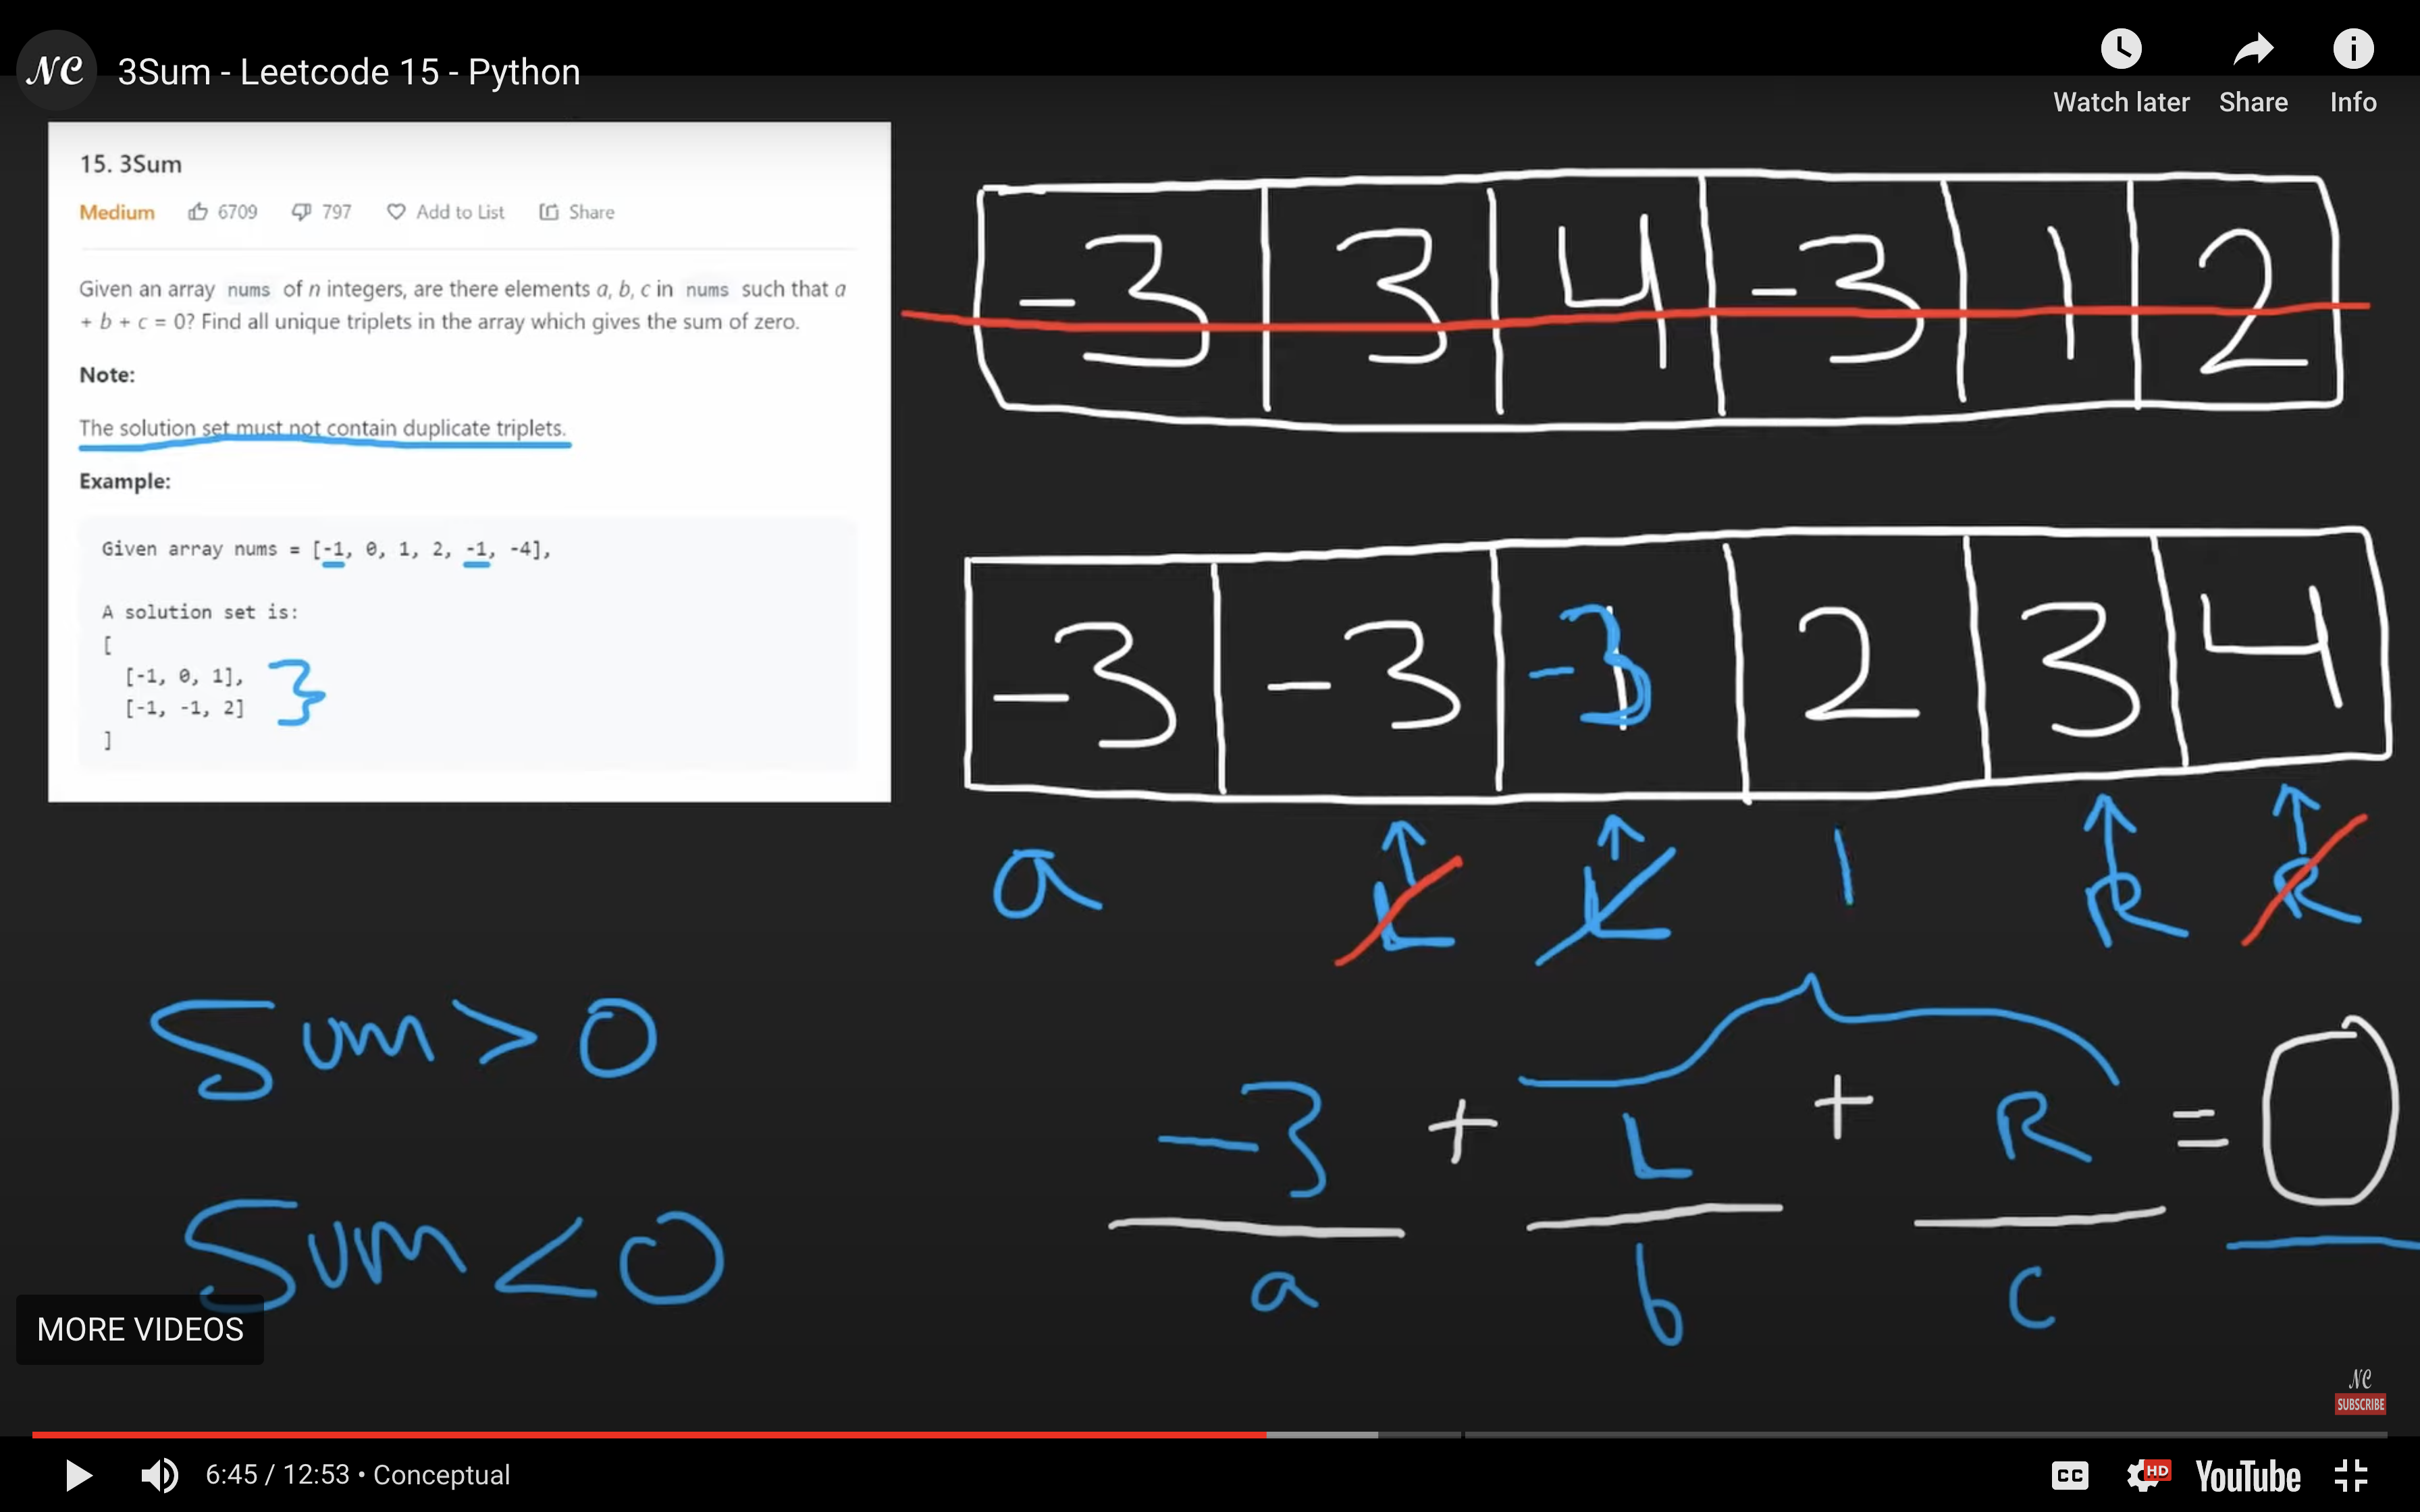 NC 3Sum - Leetcode 15 - Python
Watch later Share Info
15. 3Sum
Medium 6709 797 Add to List Share
Given an array nums of n integers, are there elements a, b, c in nums such that a
+ b + c = 0? Find all unique triplets in the array which gives the sum of zero.
Note:
The solution set must not contain duplicate triplets.
Example:
Given array nums = [-1, 0, 1, 2, -1, -4],
A solution set is:
[
[-1, 0, 1],
[-1, -1, 2]
]
-3 3 4 -3 1 2
-3 -3 -3 2 3 4
a L L R R
Sum > 0
Sum < 0
-3 + L + R = 0
a b c
MORE VIDEOS
NC
SUBSCRIBE
6:45 / 12:53 • Conceptual
CC HD YouTube